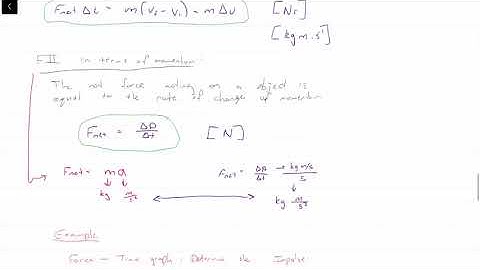 Fnet Δt = m(vf - vi) = mΔv [Ns]
[kg m.s⁻¹]
in terms of momentum
The net force acting on a object is
equal to the rate of change of momentum
Fnet = Δp/Δt [N]
Fnet = ma
kg m/s²
Fnet = Δp/Δt → kg m/s / s
kg m/s²
Example
Force - Time graph : Determine the Impulse